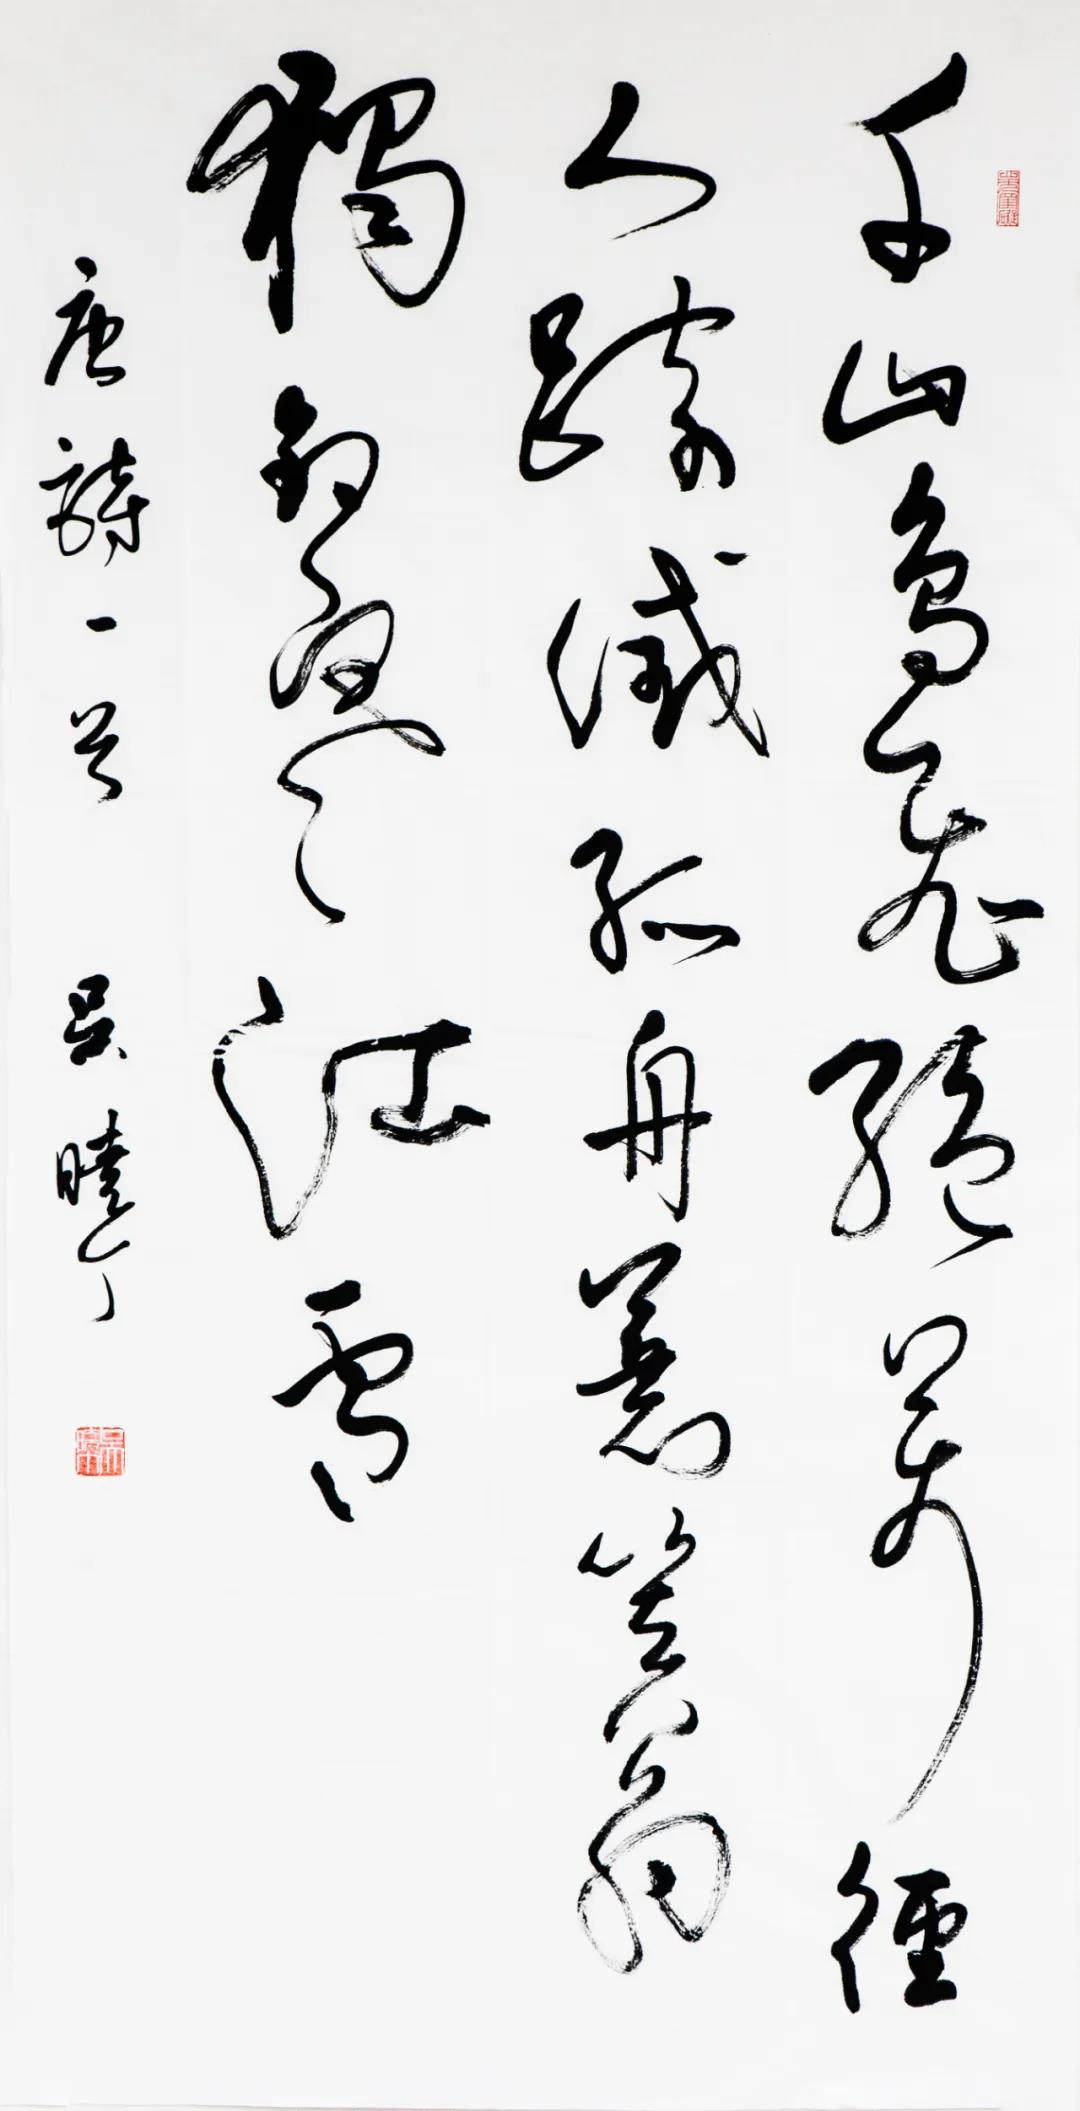 千山鳥飛絕萬徑
人踪滅孤舟蓑笠翁
獨釣寒江雪
唐詩一首 吳曉